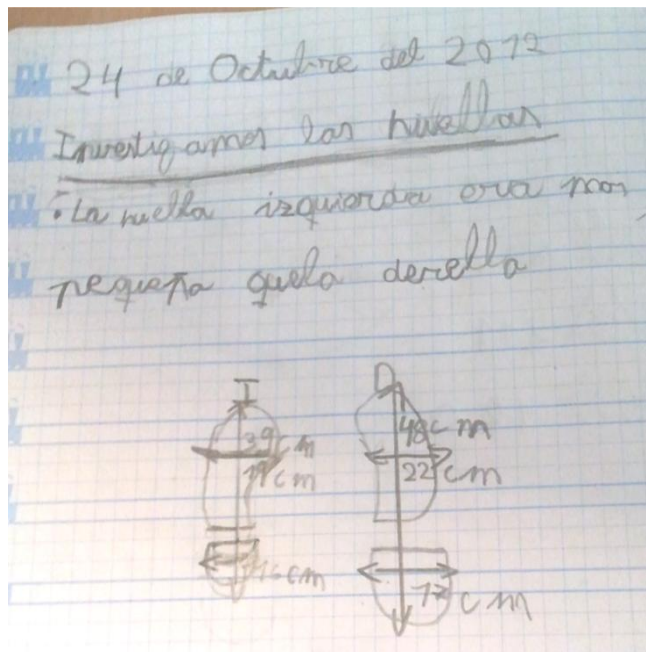 24 de Octubre del 2012
Investigamos las huellas
La huella izquierda era mas
pequeña quela derella
I D
39cm 48cm
19cm 22cm
16cm 17cm